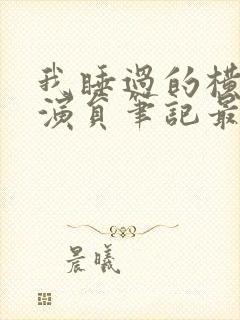 我睡过的横
演員筆記最
晨曦